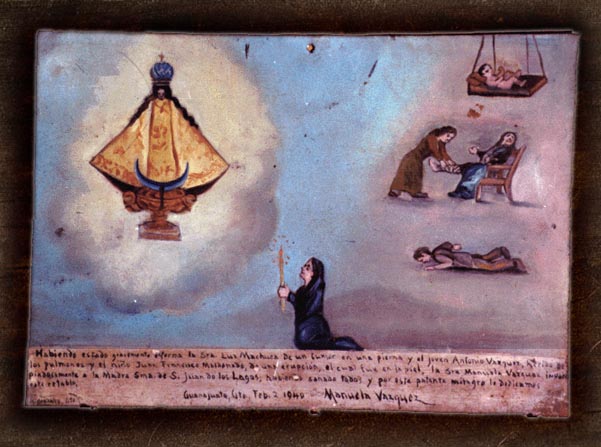 Habiendo estado gravemente enferma la Sra. Luz Machuca de un tumor en una pierna y el joven Antonio Vazquez, de
los pulmones y el niño Juan Francisco Maldonado, de una erupcion, el cual fue en la piel, la Sra Manuela Vazquez
piadosamente a la Madre Sma. de S. Juan de los Lagos, habiendo sanado todos y por este patente milagro le dedicamos
este retablo.
Guanajuato, Gto. Feb. 2 1940 Manuela Vazquez